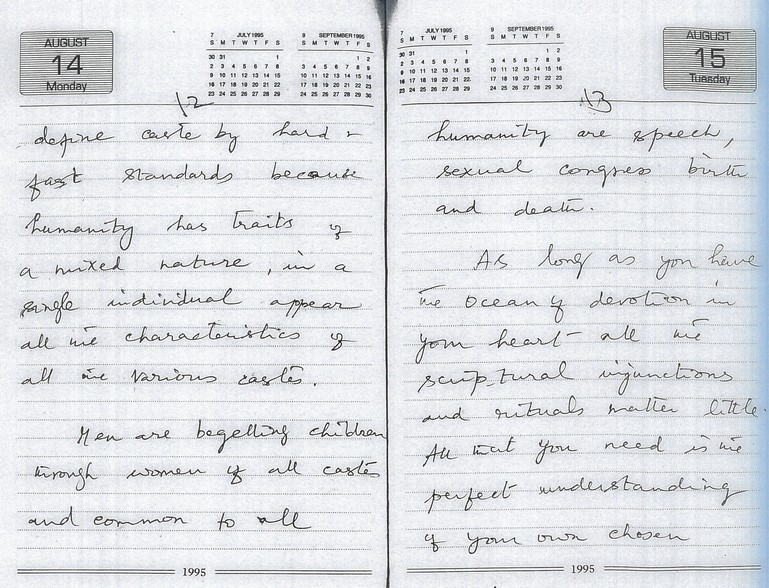 AUGUST
14
Monday
7 JULY 1995
S M T W T F S
30 31 1
2 3 4 5 6 7 8
9 10 11 12 13 14 15
16 17 18 19 20 21 22
23 24 25 26 27 28 29
9 SEPTEMBER 1995
S M T W T F S
1 2
3 4 5 6 7 8 9
10 11 12 13 14 15 16
17 18 19 20 21 22 23
24 25 26 27 28 29 30
12
define caste by hard &
fast standards because
humanity has traits of
a mixed nature, in a
single individual appear
all the characteristics of
all the various castes.
Men are begetting children
through women of all castes
and common to all
1995
7 JULY 1995
S M T W T F S
30 31 1
2 3 4 5 6 7 8
9 10 11 12 13 14 15
16 17 18 19 20 21 22
23 24 25 26 27 28 29
9 SEPTEMBER 1995
S M T W T F S
1 2
3 4 5 6 7 8 9
10 11 12 13 14 15 16
17 18 19 20 21 22 23
24 25 26 27 28 29 30
AUGUST
15
Tuesday
13
humanity are speech,
sexual congress birth
and death.
As long as you have
the ocean of devotion in
your heart all the
scriptural injunctions
and rituals matter little.
All that you need is the
perfect understanding
of your own chosen
1995